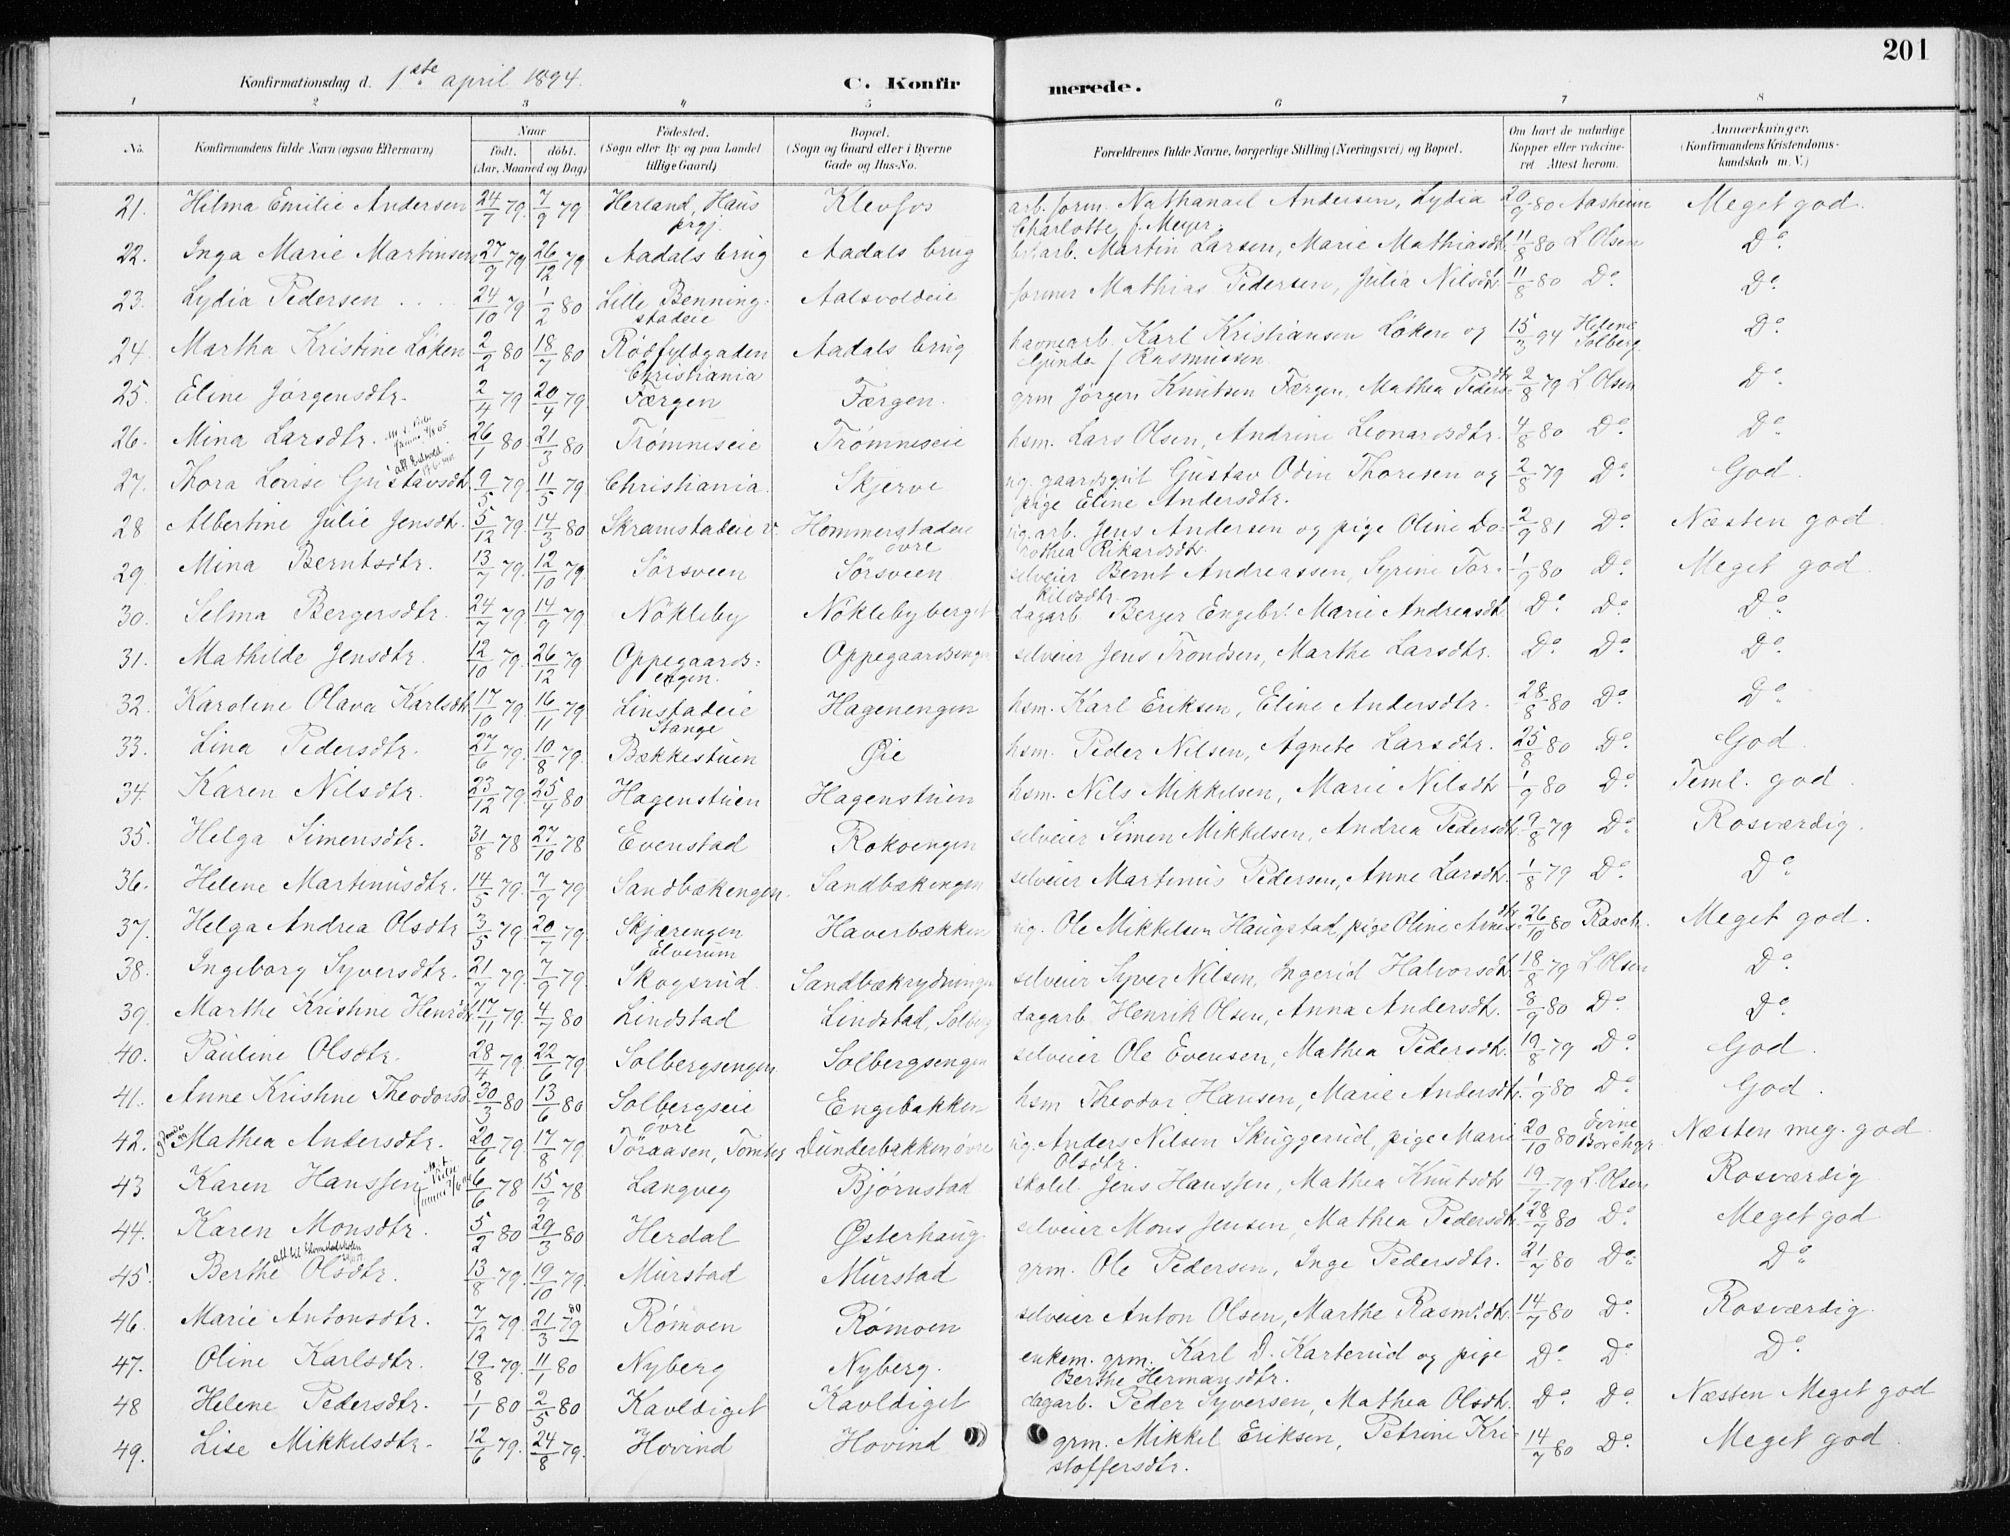 201
Konfirmationsdag d. 1ste april 1894.
C. Konfirmerede.
1 2 3 4 5 6 7 8
No. Konfirmandens fulde Navn (ogsaa Efternavn) Naar født. døbt. (Aar, Maaned og Dag) Fødested. (Sogn eller By og paa Landet tillige Gaard) Bopæl. (Sogn og Gaard eller i Byerne Gade og Hus-No. Forældrenes fulde Navne, borgerlige Stilling (Næringsvei) og Bopæl. Om havt de naturlige Kopper eller vakcineret Attest herom. Anmærkninger. (Konfirmandens Kristendomskundskab m. V.)
21. Hilma Emilie Andersen 24/7 79. 7/9 79 Herland, Haus prgj. Klevfos arb. form. Nathanael Andersen, Lydia Charlotte f. Meyer 20/9 80 Aasheim Meget god.
22. Inga Marie Martinsen 27/9 79 26/12 79 Aadals brug Aadals brug arb. Martin Larsen, Marie Mathiasdtr. 11/8 80 L Olsen Do.
23. Lydia Pedersen 24/10 79 1/2 80 Lille Benningstadeie Aalsvoldeie former Mathias Pedersen, Julia Nilsdtr. 11/8 80 Do. Do.
24. Martha Kristine Løken 2/2 80 18/7 80 Rødfyldgaden Christiania Aadals brug havnearb. Karl Kristiansen Løken og Gunda f Rasmussen 15/3 94 Helene Solberg Do.
25. Eline Jørgensdtr. 2/4 79 20/4 79. Færgen Færgen. grm Jørgen Knutsen Færgen, Mathea Pedersdtr 2/8 79 L Olsen Do.
26. Mina Larsdtr. 26/1 80 21/3 80 Trømneseie Trømneseie hsm. Lars Olsen, Andrine Leonardsdtr. 4/8 80 Do. Do.
27. Thora Lovise Gustavsdtr. 9/5 79. 11/5 79 Christiania. Skjerve ug. gaardsgut Gustav Odin Thoresen og pige Eline Andersdtr. 2/8 79 Do. God.
28 Albertine Julie Jensdtr. 5/12 79. 14/3 80 Skramstadeie v. Hommerstadeie øvre ug. arb. Jens Andersen og pige Oline Dorothea Rikardsdtr. 2/9 81 Do. Næsten god
29. Mina Berntsdtr. 13/7 79. 12/10 79. Sørsveen Sørsveen selveier Bernt Andreassen, Syrine Torkildsdtr. 1/9 80 Do. Meget god.
30. Selma Bergersdtr. 24/7 79 14/9 79 Nökleby Nöklebyberget dagarb Berger Engebr. Marie Andreasdtr. Do. Do. Do.
31. Mathilde Jensdtr. 12/10 79. 26/12 79 Oppegaardsengen. Oppegaardsengen selveier Jens Trondsen, Marthe Larsdtr. Do. Do. Do.
32. Karoline Olava Karlsdtr. 17/10 79 16/11 79 Linstadeie Stange Hagenengen hsm. Karl Eriksen, Eline Andersdtr. 28/8 80 Do. Do.
33. Lina Pedersdtr. 27/6 79. 10/8 79. Bækkestuen Øie hsm. Peder Nilsen, Agnete Larsdtr. 25/8 80 Do. God.
34. Karen Nilsdtr. 23/12 79 25/4 80 Hagenstuen Hagenstuen hsm. Nils Mikkelsen, Marie Nilsdtr. 1/9 80 Do. Teml. god.
35. Helga Simensdtr. 31/8 78 27/10 78 Evenstad Rokoengen selveier Simen Mikkelsen, Andrea Pedersdtr. 9/8 79 Do. Rosværdig.
36. Helene Martinusdtr. 14/5 79. 7/9 79 Sandbækengen. Sandbækengen selveier Martinus Pedersen, Anne Larsdtr. 1/8 79 Do. Do.
37. Helga Andrea Olsdtr 3/5 79 20/7 79 Skjærengen Elverum Haverbækken ug. Ole Mikkelsen Haugstad, pige Oline Arnesdtr. 26/10 80 Rasch. Meget god.
38. Ingeborg Syversdtr. 21/7 79. 7/9 79. Skogsrud. Sandbækrydningen selveier Syver Nilsen, Ingerid Halvorsdtr. 18/8 79 L Olsen Do.
39. Marthe Kristine Henrdtr. 17/11 79. 4/7 80 Lindstad Lindstad, Solberg dagarb. Henrik Olsen, Anna Andersdtr. 8/9 80 Do. Do.
40. Pauline Olsdtr. 28/4 79. 22/6 79 Solbergsengen. Solbergsengen selveier Ole Evensen, Mathea Pedersdtr. 19/8 79 Do. God.
41. Anne Kristine Theodorsd. 30/3 80 13/6 80 Solbergseie øvre Engebakken hsm Theodor Hansen, Marie Andersdtr. 1/9 80 Do. God.
42. Mathea Andersdtr. 20/6 79. 17/8 79 Töraasen, Tomter Dunderbakken øvre ug. Anders Nilsen Skuggerud, pige Marie Olsdtr. 20/10 80 Borchgr. Næsten meg. god.
43 Karen Hanssen 6/6 78 15/9 78 Langveg Bjørnstad skolel. Jens Hanssen, Mathea Knutsdtr 19/7 79 L. Olsen Rosværdig
44. Karen Monsdtr. 5/2 80 29/3 80 Herdal Østerhaug selveier Mons Jensen, Mathea Pedersdtr. 28/7 80 Do. Meget god
45. Berthe Olsdtr. 13/8 79. 19/10 79. Murstad Murstad grm. Ole Pedersen, Inge Pedersdtr. 21/7 80 Do. Do
46. Marie Antonsdtr. 7/12 79. 21/3 79 80 Rømoen Rømoen selveier Anton Olsen, Marthe Rasm.dtr. 14/7 80 Do. Rosværdig.
47. Oline Karlsdtr. 19/8 79. 11/1 80 Nyberg Nyberg. enkem. grm. Karl D. Karterud og pige Berthe Hermansdtr. Do. Do. Do.
48 Helene Pedersdtr. 1/1 80 2/5 80 Kavldiget Kavldiget dagarb. Peder Syversen, Mathea Olsdtr. Do. Do. Næsten Meget god
49. Lise Mikkelsdtr. 12/6 79. 24/8 79. Hovind Hovind grm. Mikkel Eriksen, Petrine Kristoffersdtr. 14/7 80 Do. Meget god